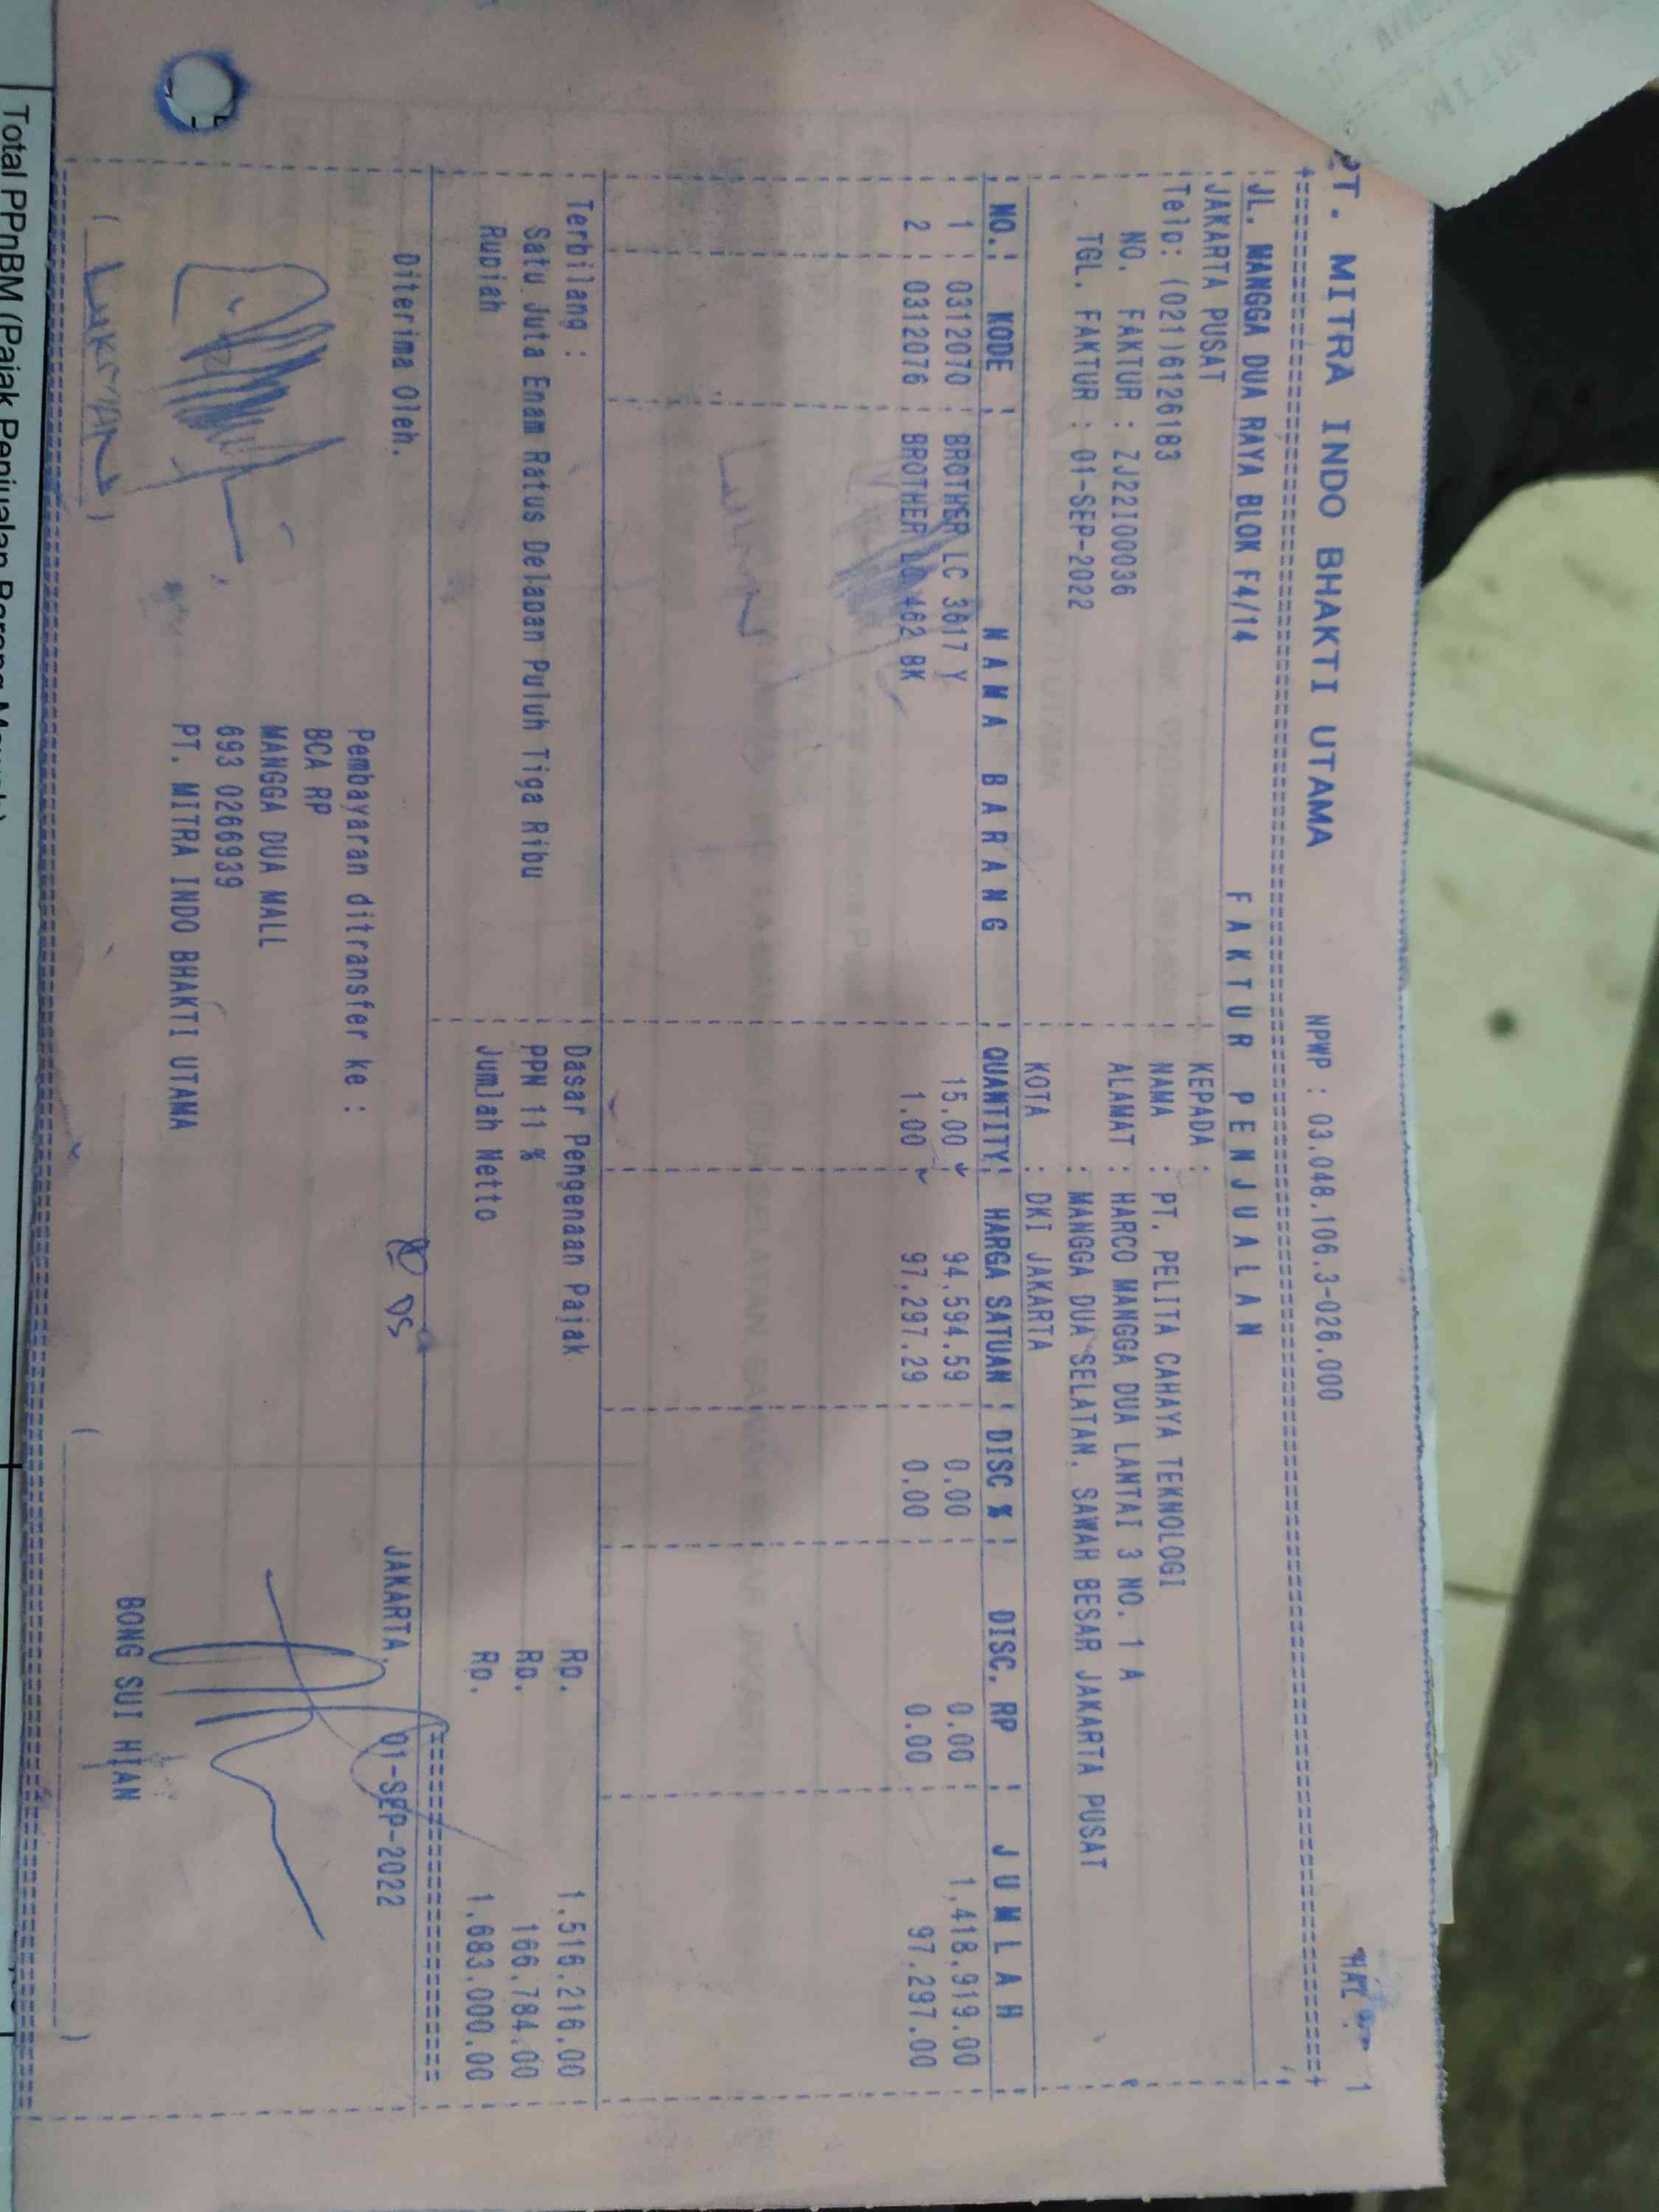 PT. MITRA INDO BHAKTI UTAMA NPWP : 03.048.106.3-026.000 HAL : 1
JL. MANGGA DUA RAYA BLOK F4/14 F A K T U R P E N J U A L A N
JAKARTA PUSAT KEPADA :
Telp: (021)6126183 NAMA : PT. PELITA CAHAYA TEKNOLOGI
NO. FAKTUR : ZJ22I00036 ALAMAT : HARCO MANGGA DUA LANTAI 3 NO. 1 A
TGL. FAKTUR : 01-SEP-2022 : MANGGA DUA SELATAN. SAWAH BESAR JAKARTA PUSAT
KOTA : DKI JAKARTA
NO. KODE N A M A B A R A N G QUANTITY HARGA SATUAN DISC % DISC. RP J U M L A H
1 0312070 BROTHER LC 3617 Y 15.00 94,594.59 0.00 0.00 1,418,919.00
2 0312076 BROTHER LC 462 BK 1.00 97,297.29 0.00 0.00 97,297.00
LUKMAN
Terbilang : Dasar Pengenaan Pajak Rp. 1,516,216.00
Satu Juta Enam Ratus Delapan Puluh Tiga Ribu PPN 11 % Rp. 166,784.00
Rupiah Jumlah Netto Rp. 1,683,000.00
Diterima Oleh. JAKARTA, 01-SEP-2022
Pembayaran ditransfer ke :
BCA RP
MANGGA DUA MALL
693 0266939
PT. MITRA INDO BHAKTI UTAMA
( LUKMAN ) ( BONG SUI HIAN )
Total PPnBM (Pajak Penjualan Barang Mewah)